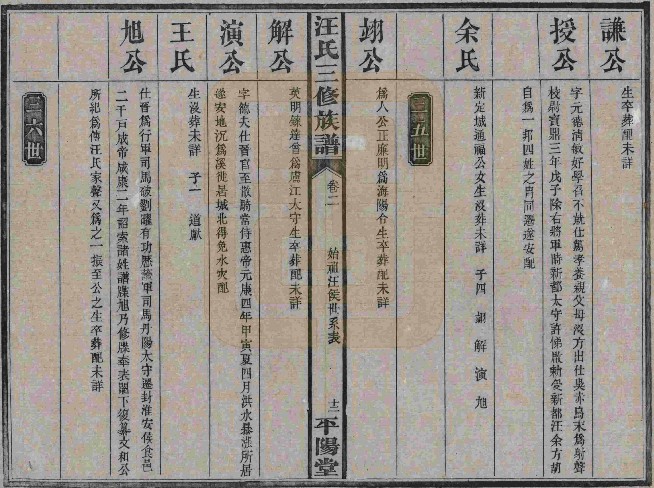 謙公
生卒葬配未詳
授公
字元
好學習不就仕焉孝養親父母沒方出仕吳赤烏末為射聲
校尉寶鼎三年戊子除右將軍時新都太守許
自為一邦四姓之冑同遷遂安配
余氏
新定城通福公女生沒葬未詳 子四 翊 解 演 旭
三五世
翊公
為人公正廉明為海陽令生卒葬配未詳
汪氏三修族譜
卷二
始祖汪侯世系表
十二
平陽堂
解公
英明練達曾為廬江太守生卒葬配未詳
演公
字德夫仕晉官至散騎常侍惠帝元康四年甲寅夏四月洪水暴漲所居
遂安地沉為溪徙居城北得免水災配
王氏
生沒葬未詳 子一 道獻
旭公
仕晉為行軍司馬破劉曜有功歷
軍司馬丹陽太守遷封淮安侯食邑
二千戶成帝咸康二年詔索諸姓譜牒旭乃修牒奉表閣下復纂文和公
所紀為傳汪氏家聲又為之一振至公之生卒葬配未詳
三六世